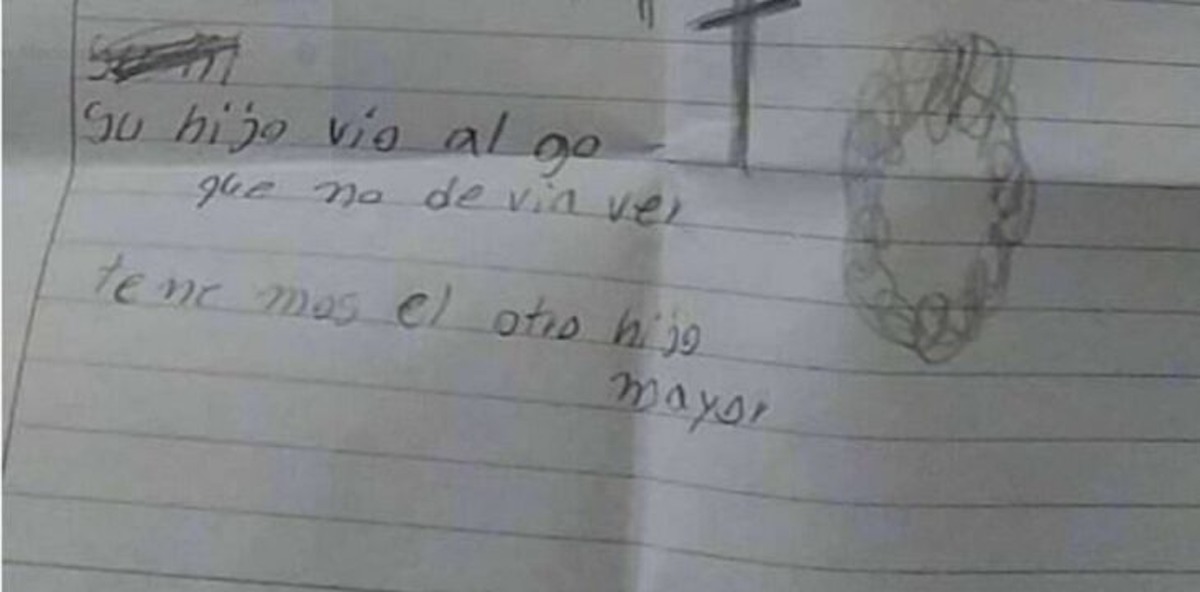 su hijo vio al go
que no de via ver
tene mos el otro hijo
mayor